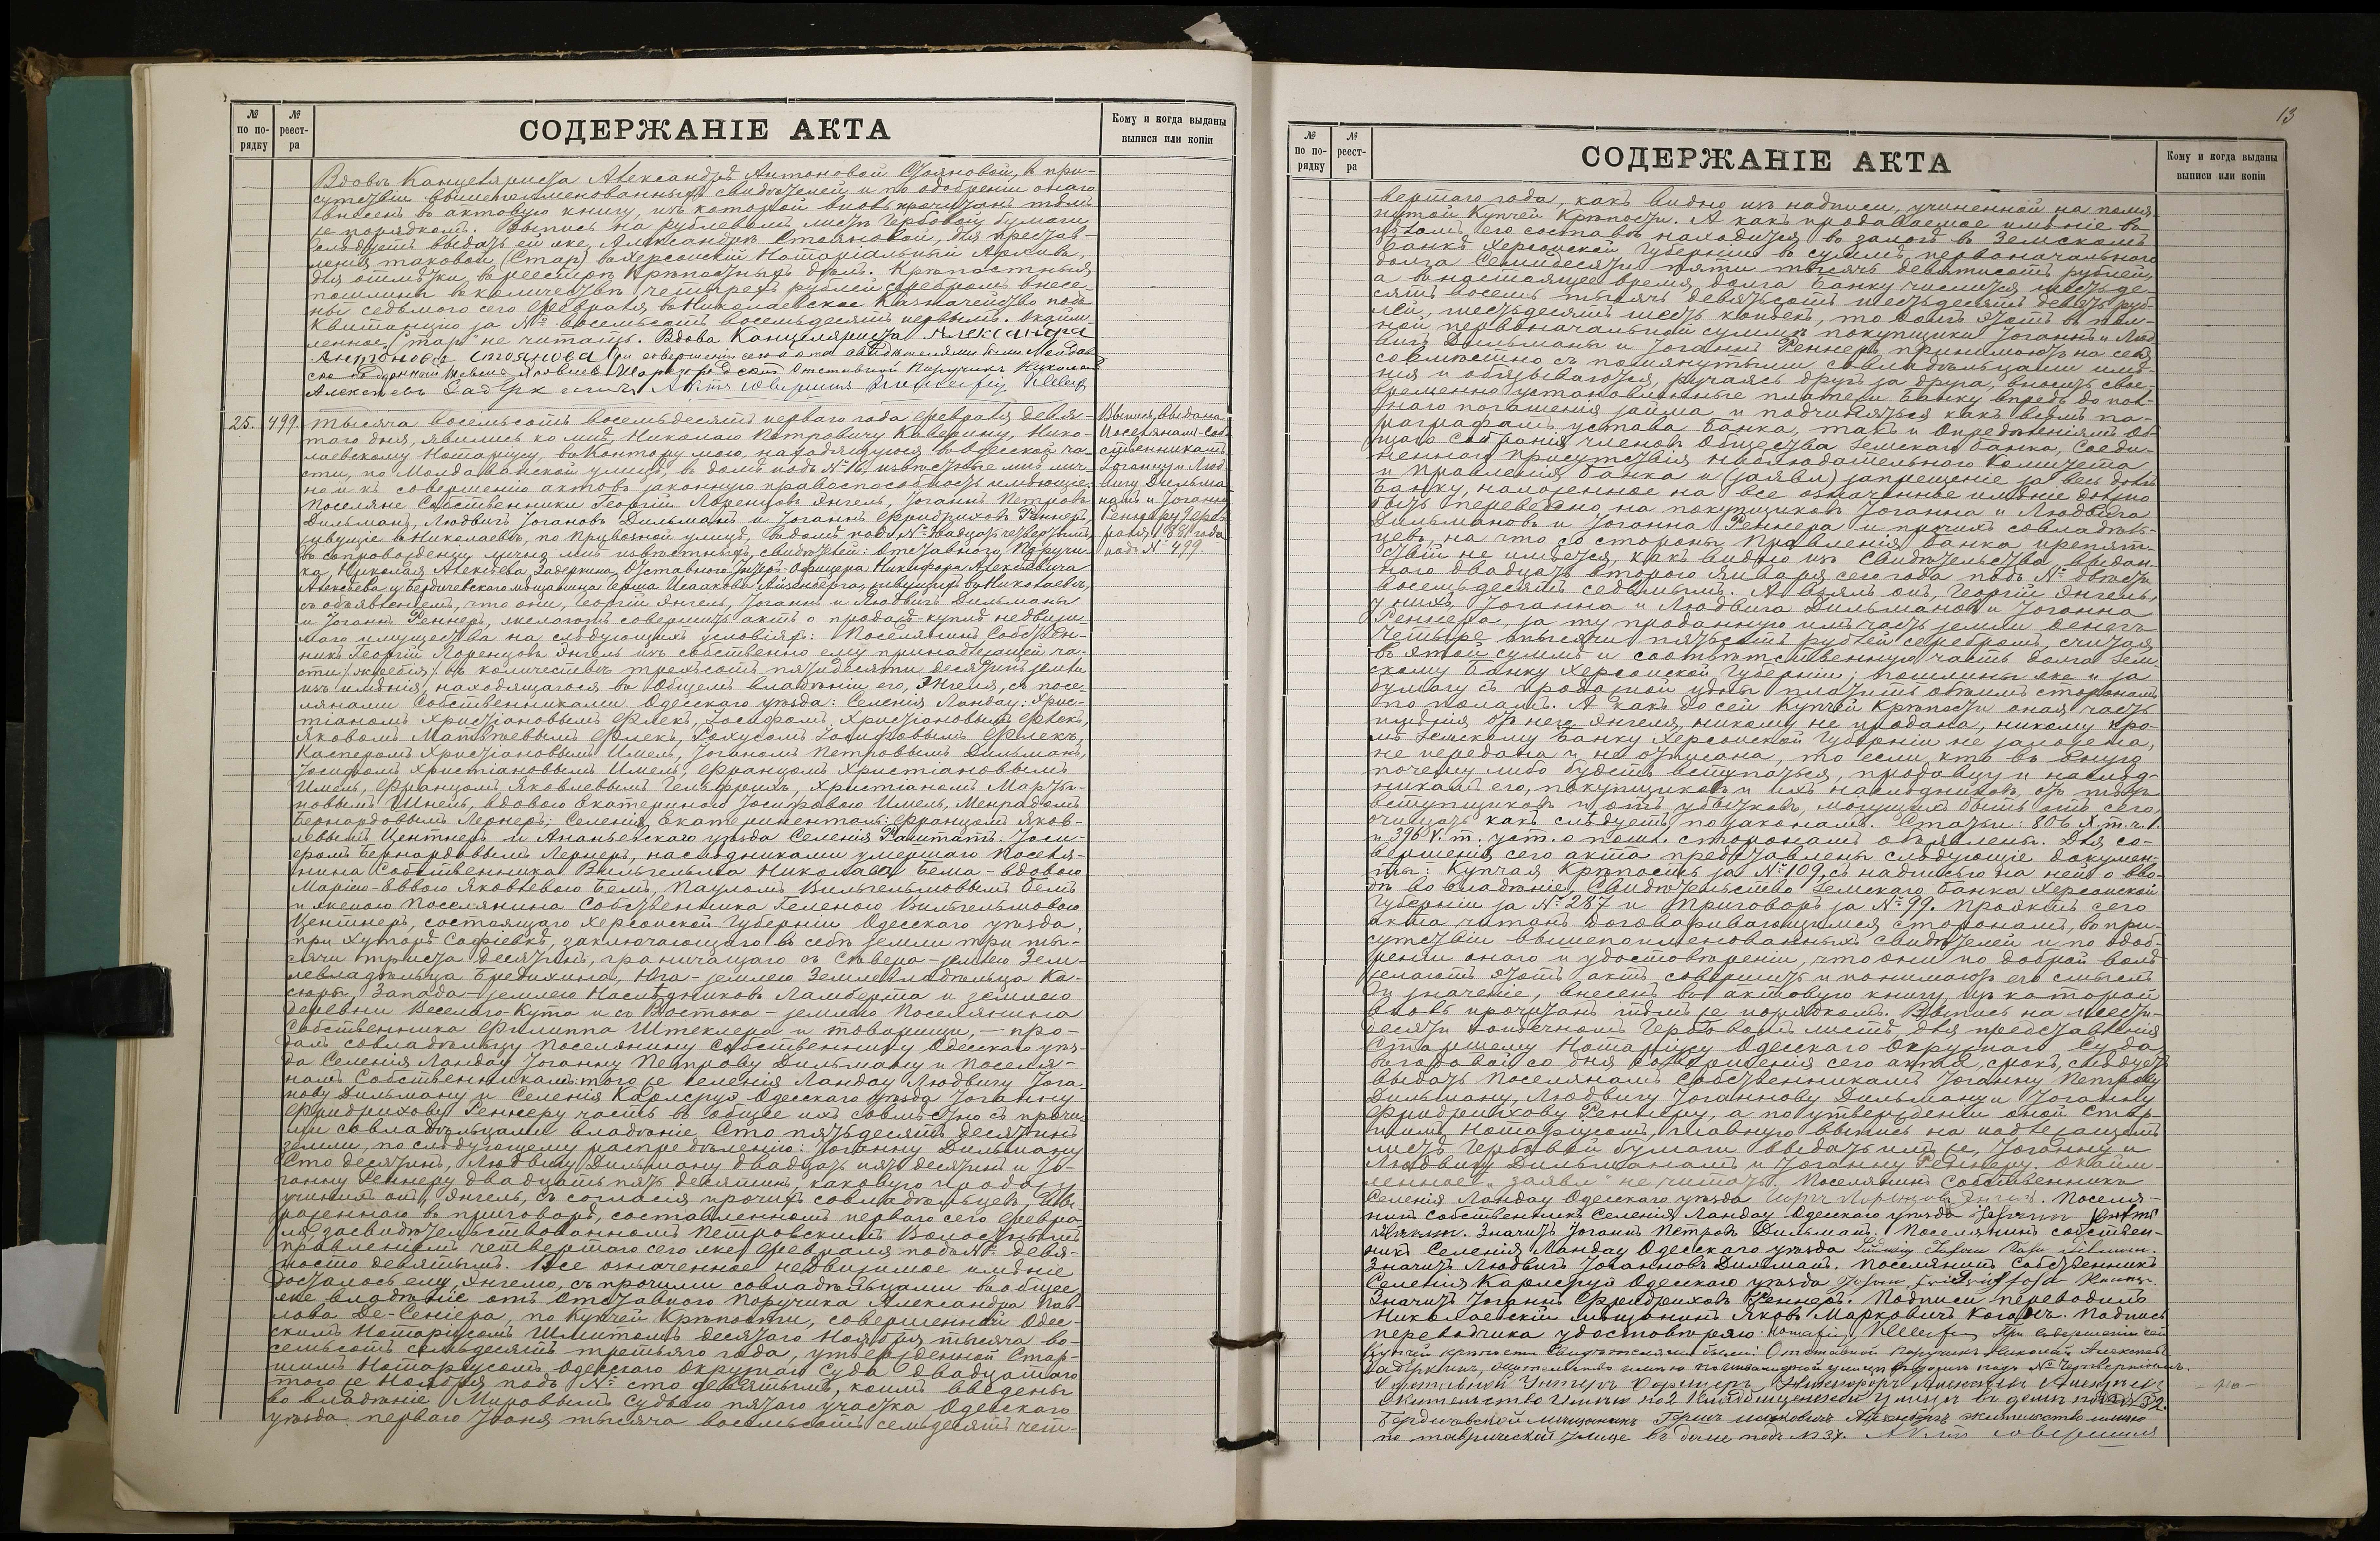 № по порядку
№ реестра
СОДЕРЖАНІЕ АКТА
Кому и когда выданы выписи или копіи
Вдовѣ Канцеляриста Александрѣ Антоновой Стояновой, въ при-
сутствіи вышепоименованныхъ свидѣтелей и по одобреніи онаго
внесенъ въ актовую книгу, изъ которой вновь прочитанъ тѣмъ
же порядкомъ. Выпись на рублевомъ листѣ Гербовой бумаги
слѣдуетъ выдать ей же, Александрѣ Стояновой, для представ-
ленія таковой (Стар) въ Херсонскій Нотаріальный Архивъ,
для отмѣтки въ реестрѣ Крѣпостныхъ дѣлъ. Крѣпостныя
пошлины въ количествѣ четырехъ рублей серебромъ внесе-
ны седьмого сего Февраля, въ Николаевское Казначейство подъ
Квитанцію за № восемьсотъ восемьдесятъ первымъ. Окайм-
ленное „Стар" не читать. Вдова Канцеляриста Александра
Антонова Стоянова При совершеніи сего акта свидетелями были
Отставной Поручикъ Николай
Алексеевъ Задеркинъ
25. 499. Тысяча восемьсотъ восемьдесятъ перваго года Февраля девя-
таго дня, явились ко мнѣ, Николаю Петровичу Каверину, Нико-
лаевскому Нотаріусу, въ Контору мою, находящуюся въ Одесской ча-
сти, по Молдаванской улицѣ, въ домѣ подъ № 16, извѣстные мнѣ лич-
но и къ совершенію актовъ законную правоспособность имѣющіе:
Поселяне Собственники Георгій Лоренцовъ Энгель, Іоганнъ Петровъ
Дильманъ, Людвигъ Іогановъ Дильманъ и Іоганнъ Фридриховъ Реннеръ,
живущіе въ Николаевѣ, по Привозной улицѣ, въ домѣ подъ № двадцать четвертымъ
въ сопровожденіи лично мнѣ извѣстныхъ свидѣтелей: Отставного Поручи-
ка Николая Алексѣева Задеркина, Отставного Унтеръ-Офицера Никифора Алексѣевича
Алексѣева и Бердичевскаго мѣщанина Герша Исаакова Айзенберга, живущихъ въ Николаевѣ,
съ объявленіемъ, что они, Георгій Энгель, Іоганнъ и Людвигъ Дильманы
и Іоганнъ Реннеръ, желаютъ совершить актъ о продажѣ-куплѣ недвижи-
маго имущества на слѣдующихъ условіяхъ: Поселянинъ Собствен-
никъ Георгій Лоренцовъ Энгель изъ собственно ему принадлежащей ча-
сти (жребія) въ количествѣ трехсотъ пятидесяти десятинъ земли
изъ имѣнія, находящагося въ общемъ владѣніи его, Энгеля, съ посе-
лянами Собственниками Одесскаго уѣзда: Селенія Ландау: Хрис-
тіаномъ Христіановымъ Флекъ, Іосифомъ Христіановымъ Флекъ,
Яковомъ Матвѣевымъ Флекъ, Рохусомъ Іосифовымъ Флекъ,
Касперомъ Христіановымъ Имель, Іоганомъ Петровымъ Дильманъ,
Іосифомъ Христіановымъ Имель, Францомъ Христіановымъ
Имель, Францомъ Яковлевымъ Гельфрихъ, Христіаномъ Марты-
новымъ Шнель, вдовою Екатериною Іосифовою Имель, Менрадомъ
Бернардовымъ Лернеръ; Селенія Екатериненталь: Францомъ Яков-
левымъ Центнеръ и Ананьевскаго уѣзда Селенія Раштатъ: Іоси-
фомъ Бернардовымъ Лернеръ, наслѣдниками умершаго Поселя-
нина Собственника Вильгельма Николаева Бема - вдовою
Маріею-Еввою Яковлевою Бемъ, Пауломъ Вильгельмовымъ Бемъ
и женою Поселянина Собственника Геленою Вильгельмовою
Центнеръ, состоящаго Херсонской Губерніи Одесскаго уѣзда,
при Хуторѣ Софіевкѣ, заключающаго въ себѣ земли три ты-
сячи триста десятинъ, граничащаго съ Сѣвера - землею Зем-
левладѣльца Бредихина, Юга - землею Землевладѣльца Ка-
сюры, Запада - землею Наслѣдниковъ Ламберта и землею
деревни Веселаго-Кута и съ Востока - землею Поселянина
Собственника Филиппа Штеклера и товарищи, - про-
далъ совладѣльцу Поселянину Собственнику Одесскаго уѣз-
да Селенія Ландау Іоганну Петрову Дильману и Поселя-
намъ Собственникамъ: того же селенія Ландау Людвигу Іога-
нову Дильману и Селенія Карлсруэ Одесскаго уѣзда Іоганну
Фридрихову Реннеру часть въ общее ихъ совмѣстно съ прочи-
ми совладѣльцами владѣніе Сто пятьдесятъ десятинъ
земли, по слѣдующему распредѣленію: Іоганну Дильману
Сто десятинъ, Людвигу Дильману двадцать пять десятинъ и Іо-
ганну Реннеру двадцать пять десятинъ, каковую продажу
учинилъ онъ, Энгель, съ согласія прочихъ совладѣльцевъ, выра-
женнаго въ приговорѣ, составленномъ перваго сего Февра-
ля, засвидѣтельствованномъ Петровскимъ Волостнымъ
правленіемъ четвертаго сего же Февраля подъ № девя-
носто девятымъ. Все означенное недвижимое имѣніе
досталось ему, Энгелю, съ прочими совладѣльцами въ общее
же владѣніе отъ Отставного Поручика Александра Пав-
лова Де-Сеніера, по Купчей Крѣпости, совершенной Одес-
скимъ Нотаріусомъ Шмитомъ десятаго Ноября тысяча во-
семьсотъ семьдесятъ третьяго года, утвержденной Стар-
шимъ Нотаріусомъ Одесскаго Окружнаго Суда двадцатаго
того же Ноября подъ № сто девятымъ, коимъ введены
во владѣніе Мировымъ Судьею пятаго участка Одесскаго
уѣзда перваго Іюня тысяча восемьсотъ семьдесятъ чет-
Выпись выдана
Поселянамъ-Соб-
ственникамъ
Іоганну и Люд-
вигу Дильма-
намъ и Іоганну
Реннеру 9 Фев-
раля 1881 года
подъ № 499
13
№ по порядку
№ реестра
СОДЕРЖАНІЕ АКТА
Кому и когда выданы выписи или копіи
вертаго года, какъ видно изъ надписи, учиненной на помя-
нутой Купчей Крѣпости. А какъ продаваемое имѣніе въ
цѣломъ его составѣ находится въ залогѣ въ Земскомъ
Банкѣ Херсонской Губерніи въ суммѣ первоначальнаго
долга Семидесяти пяти тысячъ девятисотъ рублей,
а въ настоящее время долга Банку числится шестьде-
сятъ восемь тысячъ девятьсотъ шестьдесятъ девять руб-
лей, шестьдесятъ шесть копѣекъ, то долгъ этотъ въ пол-
ной первоначальной суммѣ покупщики Іоганнъ и Люд-
вигъ Дильманы и Іоганнъ Реннеръ принимаютъ на себя
совмѣстно съ помянутыми совладѣльцами имѣ-
нія и обязываются, ручаясь другъ за друга, вносить свое-
временно установленные платежи Банку впредь до пол-
наго погашенія займа и подчиняться какъ всѣмъ па-
раграфамъ устава Банка, такъ и Опредѣленіямъ Об-
щаго Собранія членовъ Общества Земскаго Банка, Соеди-
неннаго Присутствія наблюдательнаго Комитета
и Правленія Банка и (заявл) запрещеніе за весь долгъ
Банку, наложенное на все означенное имѣніе должно
быть переведено на покупщиковъ Іоганна и Людвига
Дильмановъ и Іоганна Реннера и прочихъ совладѣль-
цевъ, на что со стороны Правленія Банка препят-
ствій не имѣется, какъ видно изъ Свидѣтельства, выдан-
наго двадцать второго Января сего года подъ № двѣсти
восемьдесятъ седьмымъ. А взялъ онъ, Георгій Энгель,
у нихъ, Іоганна и Людвига Дильмановъ и Іоганна
Реннера, за ту проданную имъ часть земли денегъ
Четыре тысячи пятьсотъ рублей серебромъ, считая
въ этой суммѣ и соотвѣтственную часть долга Зем-
скому Банку Херсонской Губерніи; пошлины же и за
бумагу съ продажной цѣны платить обѣимъ сторонамъ
по поламъ. А какъ до сей Купчей Крѣпости оная часть
имѣнія отъ него Энгеля, никому не продана, никому кро-
мѣ Земскому Банку Херсонской Губерніи не заложена,
не передана и не отписана, то если кто въ оную
почему либо будетъ вступаться, продавцу и наслѣд-
никамъ его, покупщиковъ и ихъ наслѣдниковъ, отъ тѣхъ
вступщиковъ и отъ убытковъ, могущихъ быть отъ сего,
очищать какъ слѣдуетъ по законамъ. Статьи: 806 X. т. ч. 1.
и 396 V. т. уст. о пошл. сторонамъ объявлены. Для со-
вершенія сего акта представлены слѣдующіе докумен-
ты: Купчая Крѣпость за № 109, съ надписью на ней о вво-
дѣ во владѣніе, Свидѣтельство Земскаго Банка Херсонской
Губерніи за № 287 и Приговоръ за № 99. Проэктъ сего
акта читанъ договаривающимся сторонамъ, въ при-
сутствіи вышепоименованныхъ свидѣтелей и по одоб-
реніи онаго и удостовѣреніи, что они по доброй волѣ
желаютъ этотъ актъ совершить и понимаютъ его смыслъ
и значеніе, внесенъ въ актовую книгу, изъ которой
вновь прочитанъ тѣмъ же порядкомъ. Выпись на шести-
десяти копѣечномъ Гербовомъ листѣ для представленія
Старшему Нотаріусу Одесскаго Окружнаго Суда
въ годовой со дня совершенія сего акта, срокъ, слѣдуетъ
выдать Поселянамъ Собственникамъ Іоганну Петрову
Дильману, Людвигу Іоганнову Дильману и Іоганну
Фридрихову Реннеру, а по утвержденіи оной Стар-
шимъ Нотаріусомъ, главную выпись на надлежащемъ
листѣ Гербовой бумаги выдать имъ же, Іоганну и
Людвигу Дильманамъ и Іоганну Реннеру. Окайм-
ленное „заявл" не читать. Поселянинъ Собственникъ
Селенія Ландау Одесскаго уѣзда Энгель. Поселя-
нинъ Собственникъ Селенія Ландау Одесскаго уѣзда Johann
Значитъ Іоганнъ Петровъ Дильманъ. Поселянинъ собствен-
никъ Селенія Ландау Одесскаго уѣзда Ludwig
Значитъ Людвигъ Іоганновъ Дильманъ. Поселянинъ Собственникъ
Селенія Карлсруэ Одесскаго уѣзда Johann
Значитъ Іоганнъ Фридриховъ Реннеръ. Подписи переводилъ
Николаевскій мѣщанинъ Яковъ Марковичъ Коганъ. Подпись
переводчика удостовѣряю: При совершеніи сей
Купчей крѣпости Свидѣтелями были: Отставной Поручикъ Николай Алексѣевъ
Задеркинъ, жительство имѣю по улицѣ въ домѣ подъ № Четвертымъ.
Отставной Унтеръ Офицеръ Никифоръ
Жительство имѣю по 2 улицѣ въ домѣ подъ № 32.
Бердичевскій мещанинъ Гершъ Исаковичъ Айзенбергъ жительство имѣю
по таврической улице въ доме подъ № 37. Актъ совершилъ